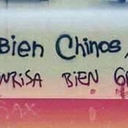 Bien Chinos
NRISA BIEN G